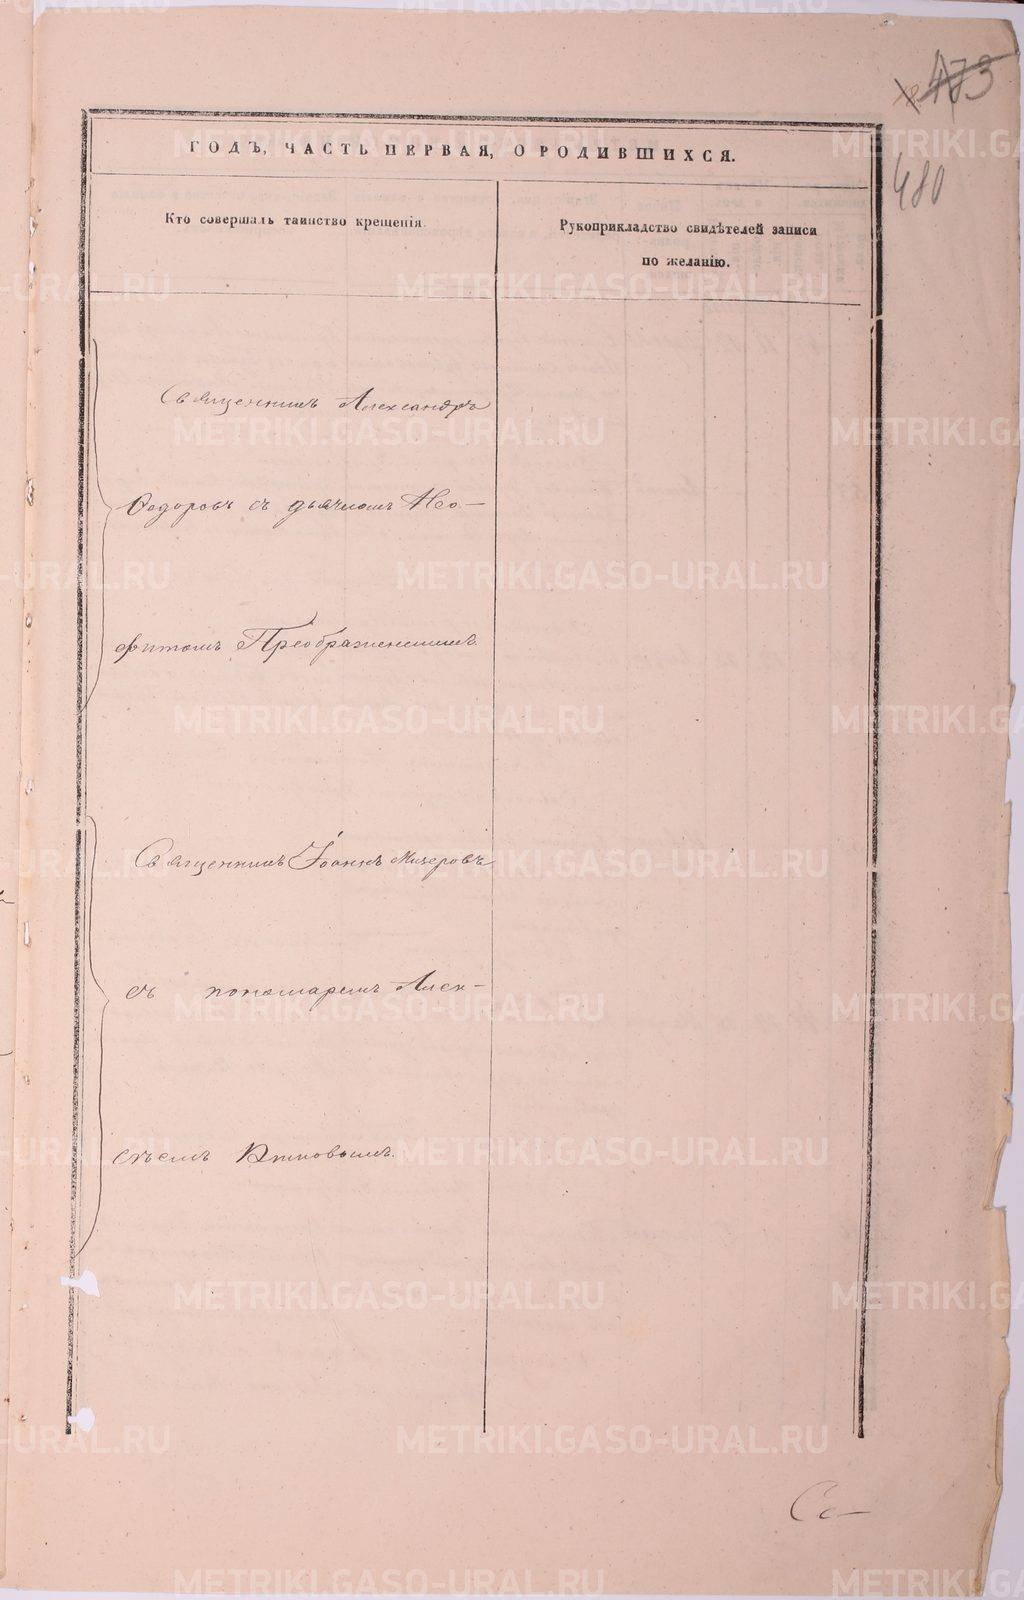 473
480
ГОДЪ, ЧАСТЬ ПЕРВАЯ, О РОДИВШИХСЯ.
Кто совершалъ таинство крещенія.
Рукоприкладство свидѣтелей записи
по желанію.
Священникъ Александръ
Ѳедоровъ съ дьячкомъ Нео-
фитомъ Преображенскимъ.
Священникъ Іоаннъ Мизеровъ
съ пономаремъ Алек-
сѣемъ
Се-
METRIKI.GASO-URAL.RU